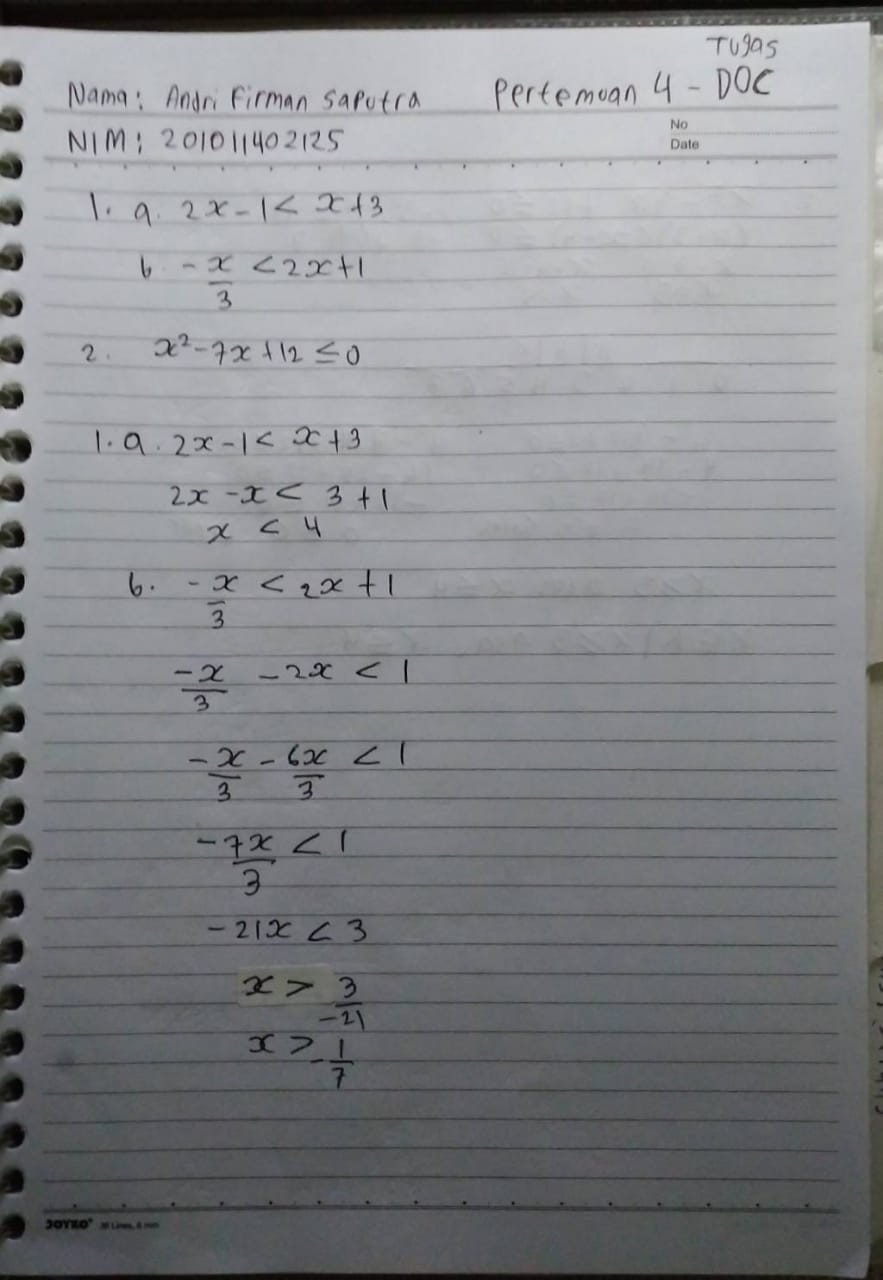 Tugas
Nama: Andri Firman Saputra Pertemuan 4 - DOC
NIM: 201011402125
No
Date
1. a. 2x - 1 < x + 3
b - x/3 < 2x + 1
2. x² - 7x + 12 ≤ 0
1. a. 2x - 1 < x + 3
2x - x < 3 + 1
x < 4
b. - x/3 < 2x + 1
-x/3 - 2x < 1
-x/3 - 6x/3 < 1
-7x/3 < 1
-21x < 3
x > 3/-21
x > -1/7
JOYKO